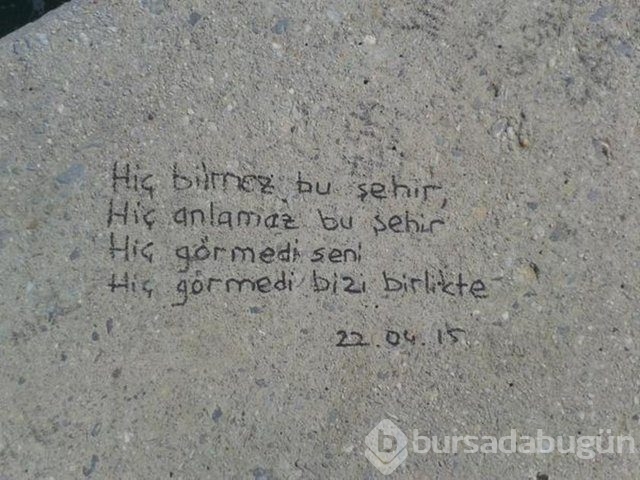 Hiç bilmez bu şehir,
Hiç anlamaz bu şehir
Hiç görmedi seni
Hiç görmedi bizi birlikte
22.04.15
bursadabugün